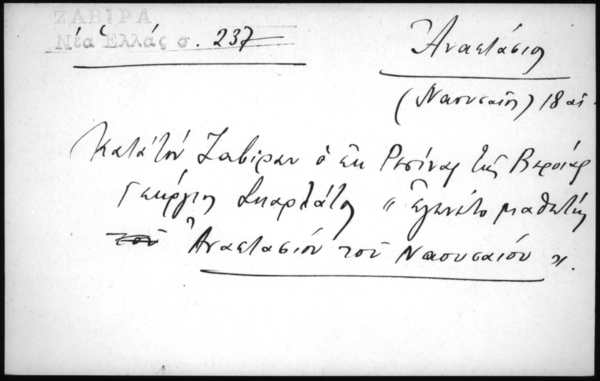 ΖΑΒΙΡΑ
Νέα Ελλάς σ. 237
Ἀναστάσιος
(Ναουσαῖος) 18 αἰ.
Κατά τόν Ζαβίραν ὁ ἐκ τῆς Βεροίας
Γεώργιος Σκαρλάτος "ἐγένετο μαθητής
τοῦ Ἀναστασίου τοῦ Ναουσαίου".